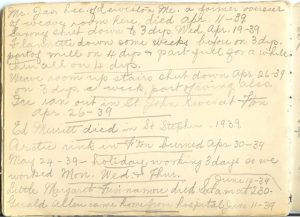 Mr. Jas. Lee of Lewiston Me. a former overseer
of weave room here, died Apr. 11-39
Saxony shut down to 3 days Wed. Apr. 19-39
some weeks before on 3 days
part of mill on 4 days & part full for a while
all on 4 days.
Weave room up stairs shut down Apr 26-39
on 3 days a week part of also
Ice ran out in St John River at F'ton
Apr 26-39
Ed Merritt died in St Stephen. 1939
Arctic rink in F'ton burned Apr 30-39
May 24-39- holiday, working 3 days so we
worked Mon. Wed & Thur.
Little Margaret Finnamore died Sat. at 2.30. June 10-39
Gerald Allen came home from hospital Jun 11-39